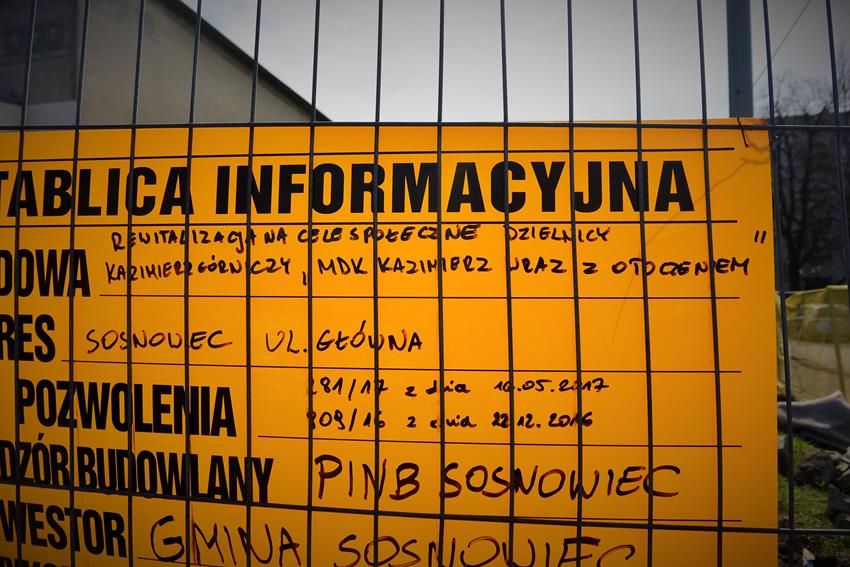 TABLICA INFORMACYJNA
REWITALIZACJA NA CELE SPOŁECZNE DZIELNICY
DOWA KAZIMIERZ GÓRNICZY, MDK KAZIMIERZ WRAZ Z OTOCZENIEM"
RES SOSNOWIEC UL. GŁÓWNA
POZWOLENIA 281/17 z dnia 10.05.2017
909/16 z dnia 22.12.2016
DZÓR BUDOWLANY PINB SOSNOWIEC
WESTOR GMINA SOSNOWIEC